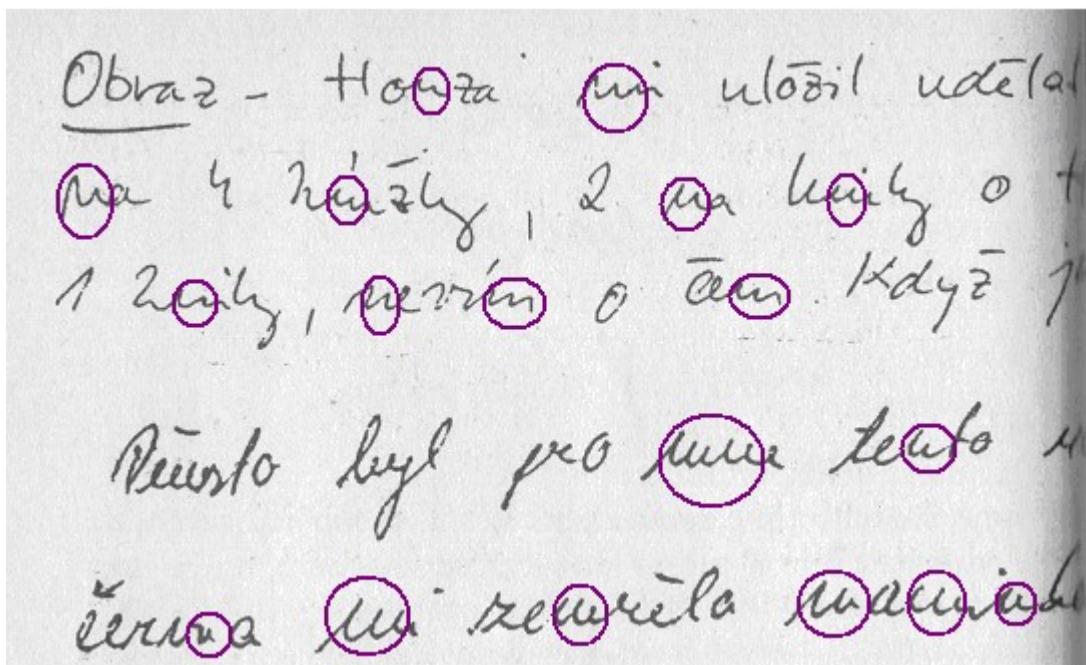 Obraz - Honza mi uložil udělat
na 4 knížky, 2 na knihy o t
1 knihy, nevím o čem. Když j
Přesto byl pro mne tento
června mi zemřela mamin